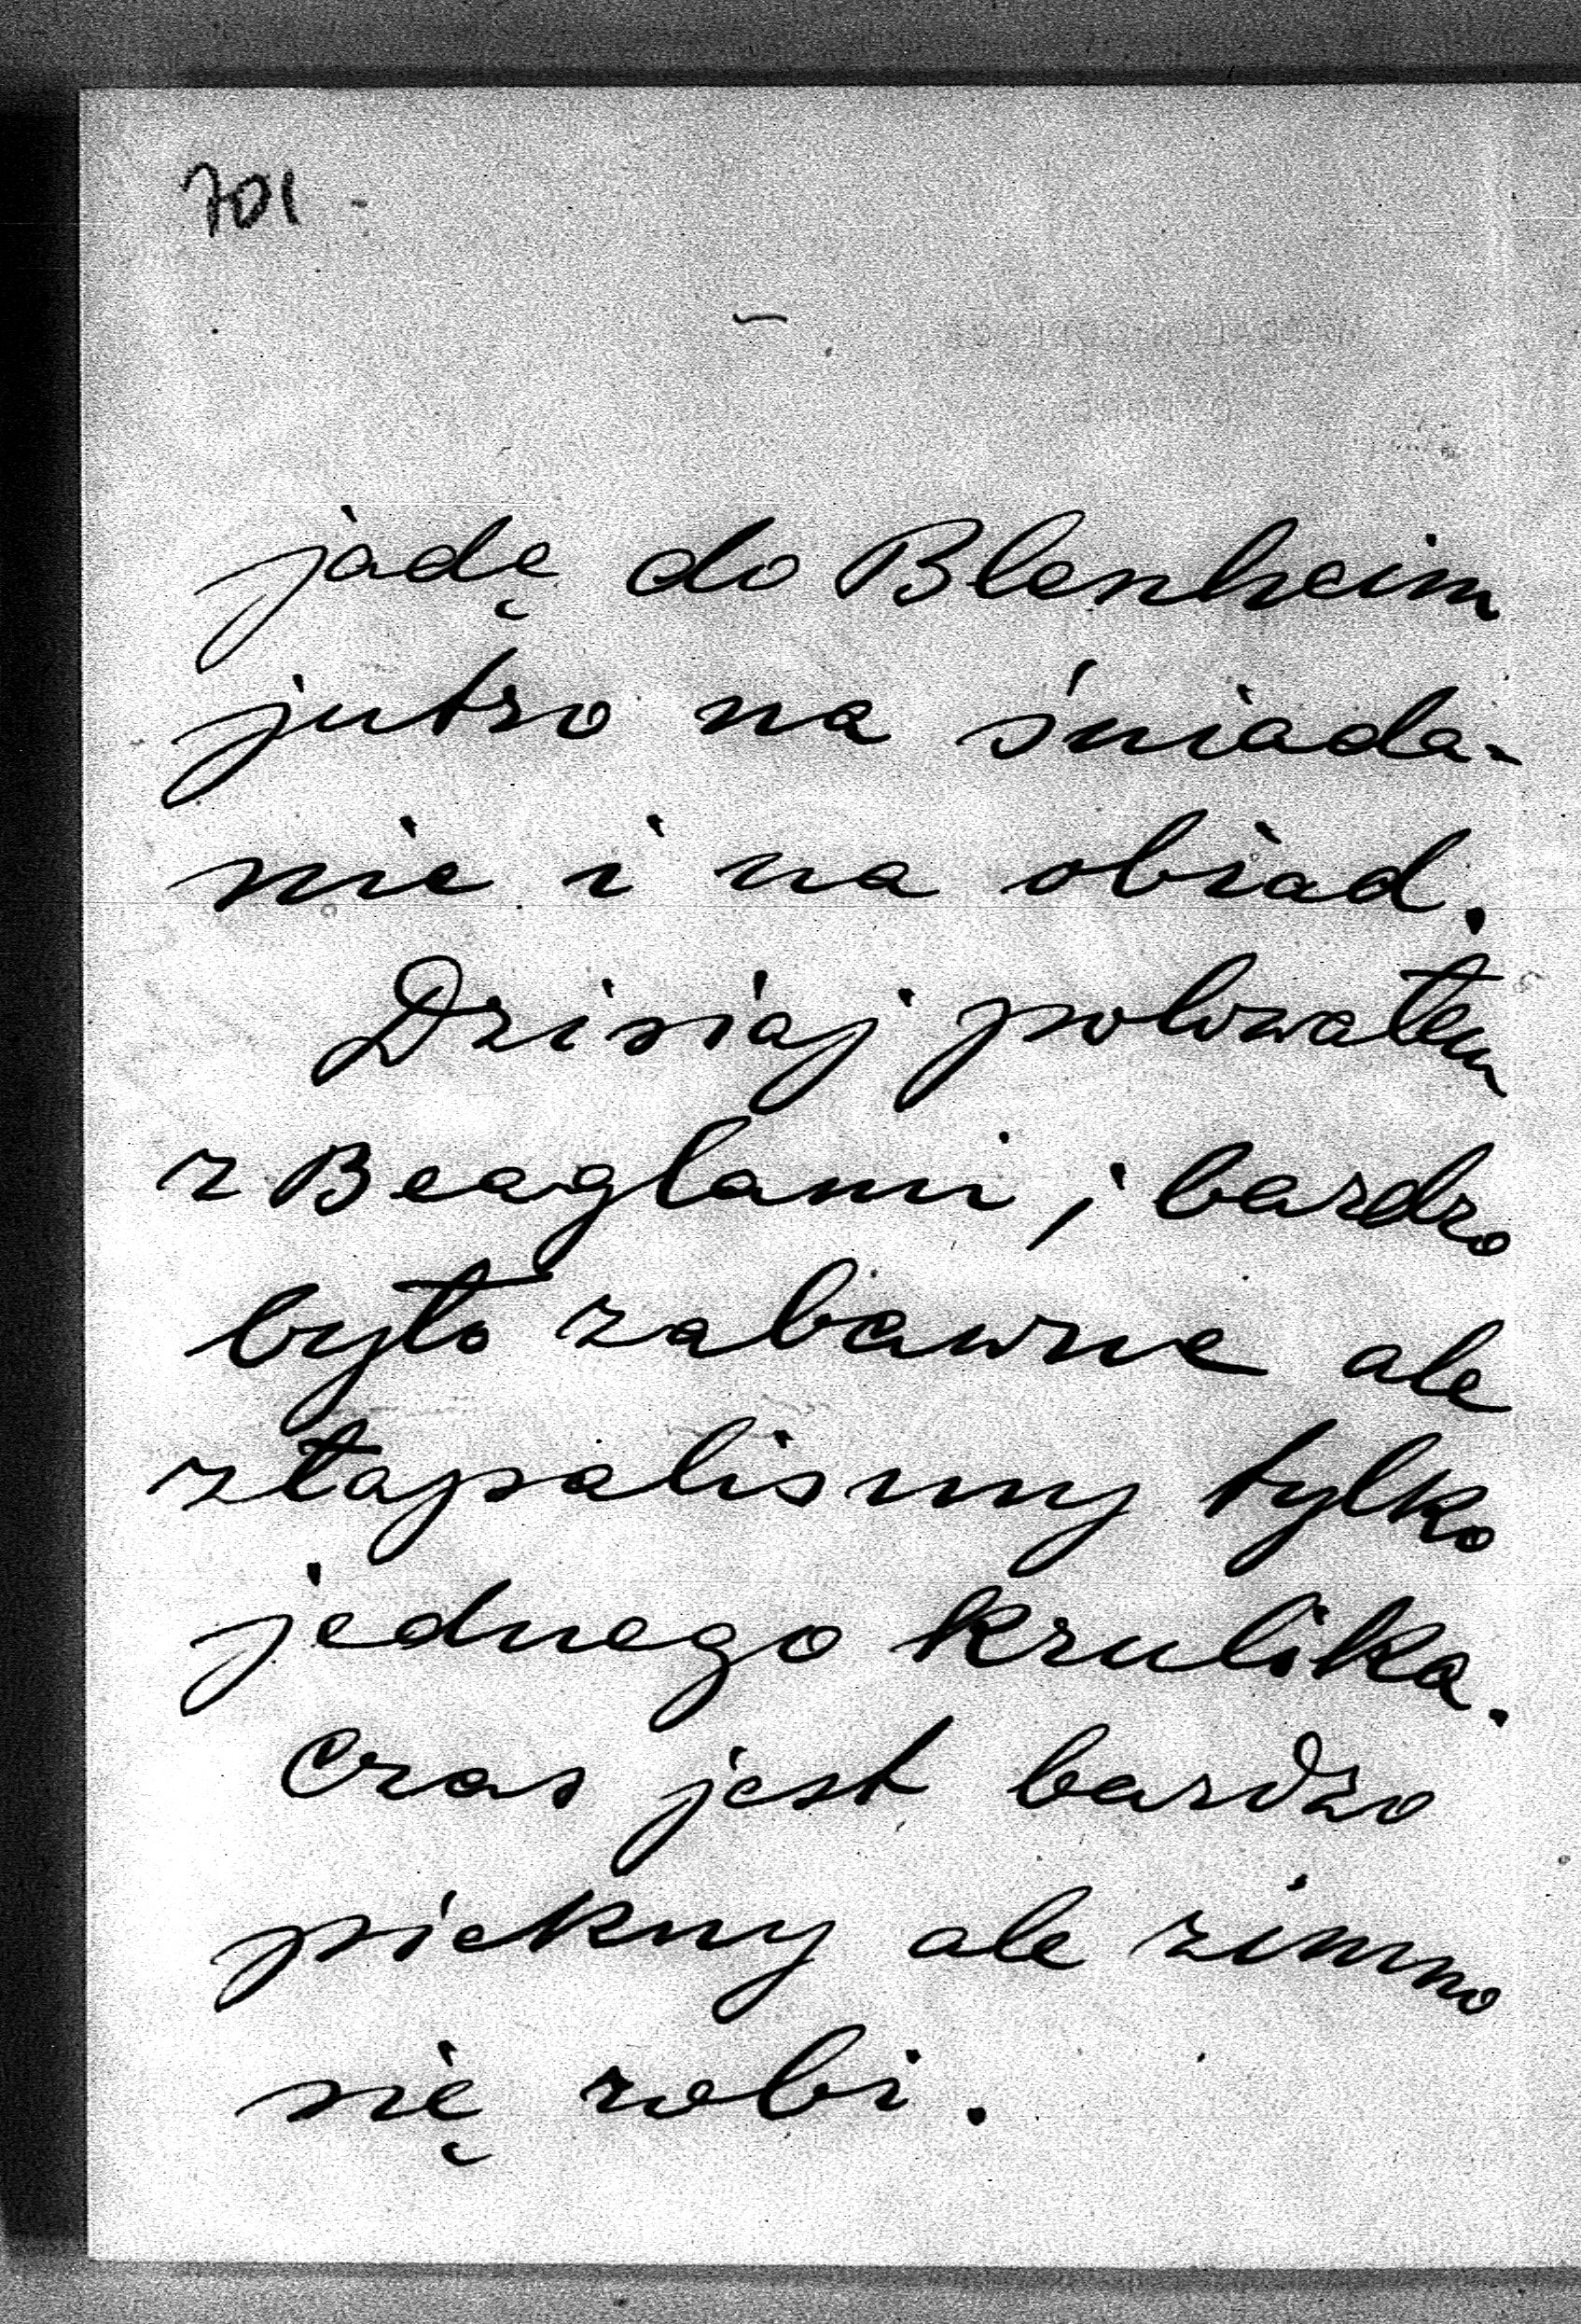 701 -
jadę do Blenheim
jutro na śniada-
nie i na obiad.
Dzisiaj polowałem
z Beaglami; bardzo
było zabawne ale
złapalismy tylko
jednego krulika.
Czas jest bardzo
piekny ale zimno
się robi.